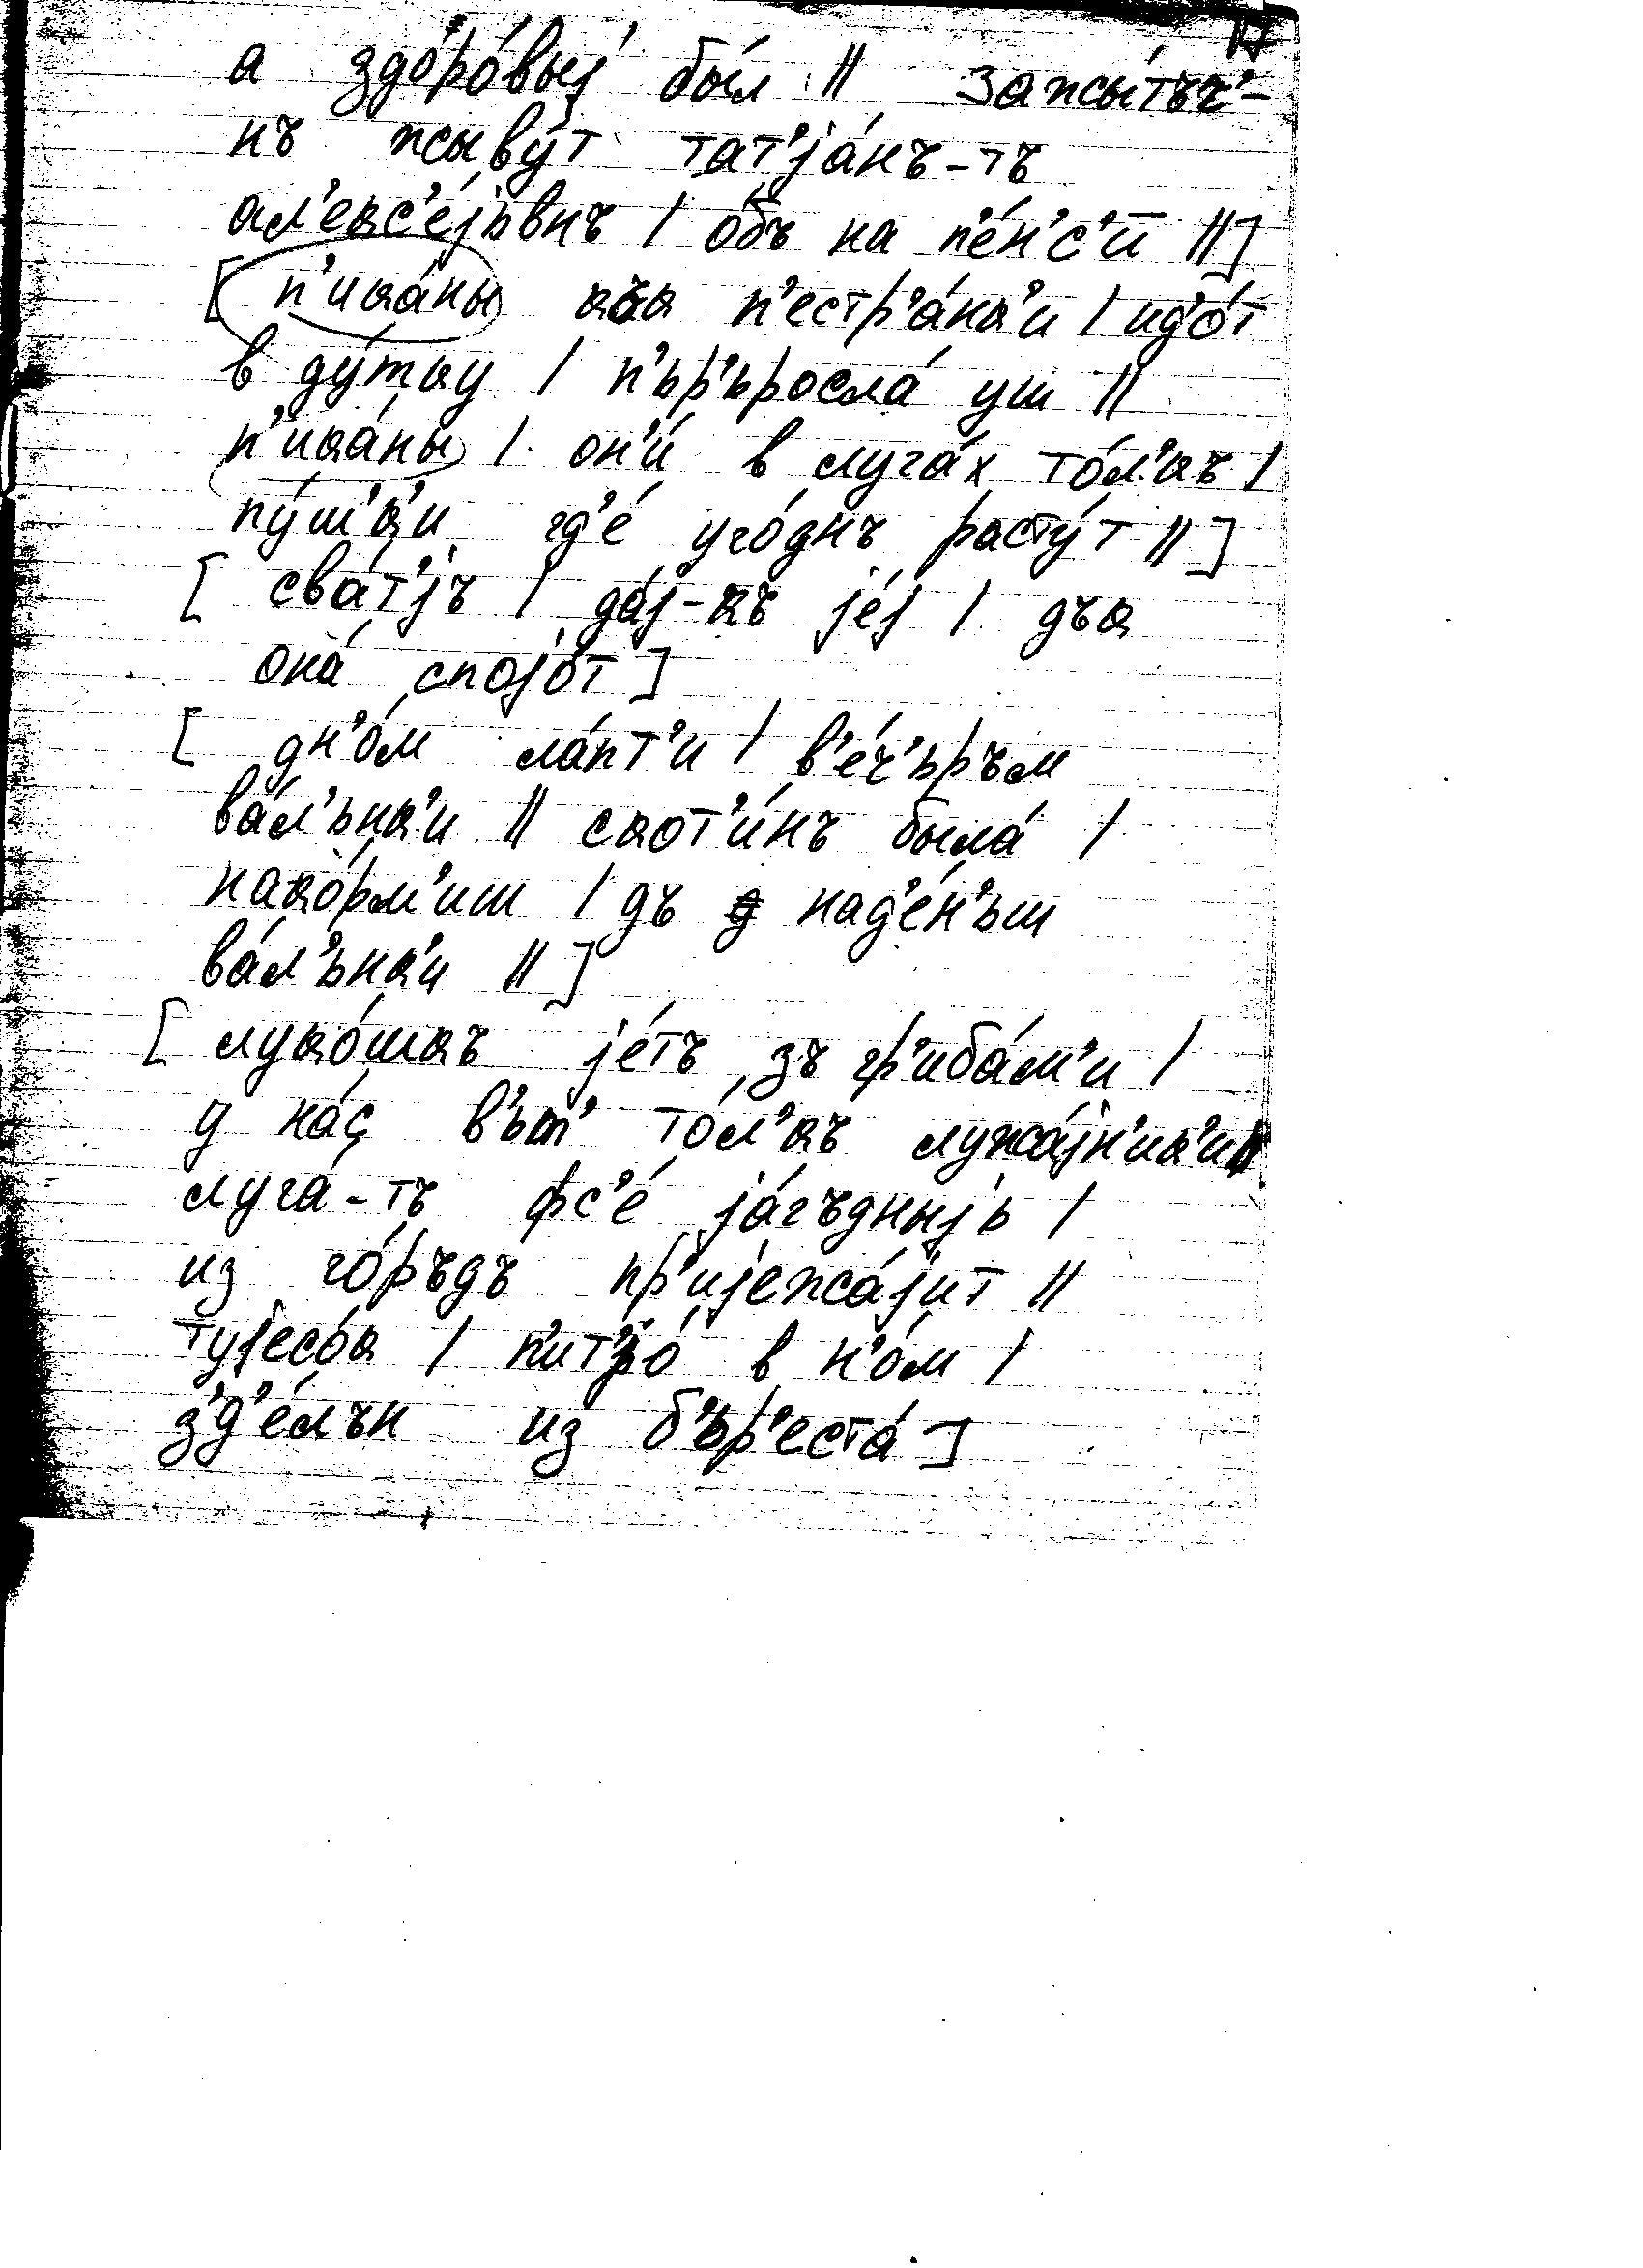 а здоро́выj бы́л || зажы́тъч'-
нъ жыву́т тат'jа́нъ-тъ
ал'екс'е́jьвнъ / о́бъ на п'е́н'с'и ||]
[ п'ика́ны как п'естр'а́нк'и / ид'о́т
в ду́тку / п'ьр'ьросла́ уш ||
п'ика́ны / он'и́ в луга́х то́л'къ /
пу́ч'к'и гд'е́ уго́днъ расту́т ||]
[ сва́т'jъ / да́j-къ jе́j / дък
она́ споjо́т ]
[ дн'о́м ла́пт'и / в'е́ч'ьръм
ва́л'ьнк'и || скот'и́нъ была́ /
нако́рм'иш / дъ над'е́н'ьш
ва́л'ьнк'и ||]
[ луко́шкъ jе́тъ зъ гр'иба́м'и /
у на́с в'ьт' то́л'къ лужа́jн'ик'и ||
луга́-тъ фс'е́ jа́гъдныjь /
из го́ръдъ пр'иjежа́jит ||
туjесо́к / п'ит'jо́ в н'о́м /
з'д'е́лън из б'ьр'еста́ ]